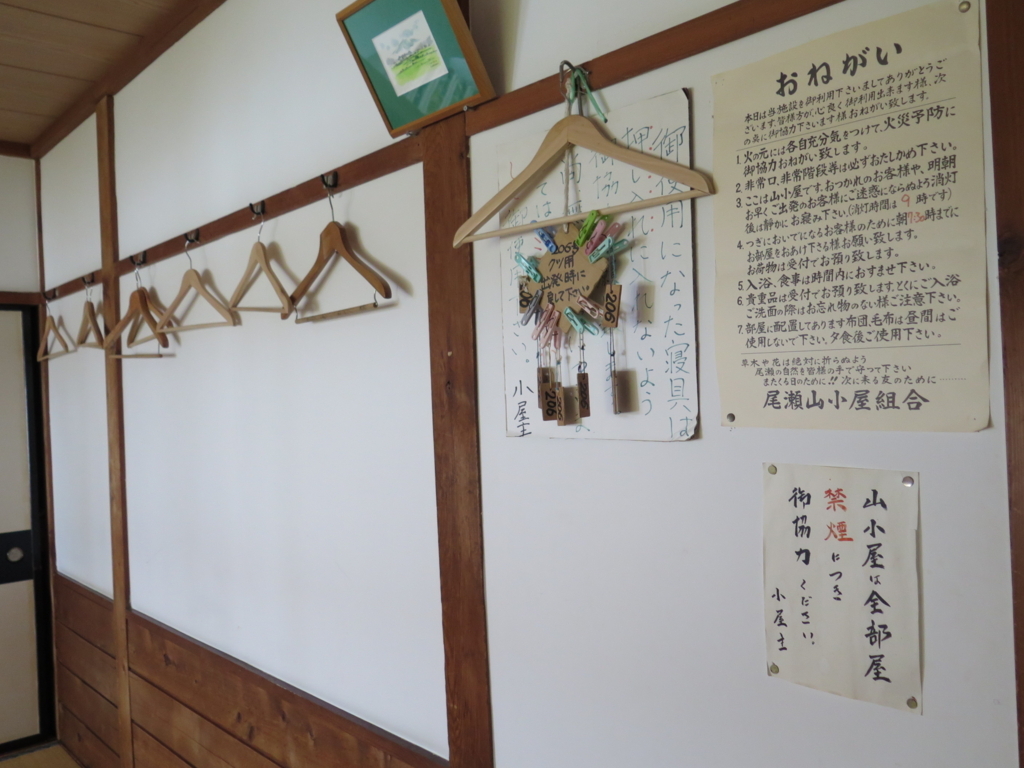 おねがい
本日は当施設を御利用下さいましてありがとうご
ざいます。皆様方が心良く御利用出来ます様、次
の点に御協力下さいます様おねがい致します。
1. 火の元には各自充分気をつけて、火災予防に
御協力おねがい致します。
2. 非常口、非常階段等は必ずおたしかめ下さい。
3. ここは山小屋です。おつかれのお客様や、明朝
お早くご出発のお客様にご迷惑にならぬよう消灯
後は静かにお寝み下さい。(消灯時間は9時です)
4. つぎにおいでになるお客様のために朝7:30時までに
お部屋をおあけ下さる様お願い致します。
お荷物は受付てお預り致します。
5. 入浴、食事は時間内におすませ下さい。
6. 貴重品は受付てお預り致します。とくにご入浴
ご洗面の際はお忘れ物のない様ご注意下さい。
7. 部屋に配置してあります布団、毛布は昼間はご
使用しないで下さい。夕食後ご使用下さい。
草木や花は絶対に折らぬよう
尾瀬の自然を皆様の手で守って下さい
またくる日のために!!次に来る友のために………
尾瀬山小屋組合
御使用になった寝具は
押し入れに入れないよう
御協
小屋主
206号
クツ用
出発時に
戻して下さい
206
206
206
山小屋は全部屋
禁煙につき
御協力ください。
小屋主